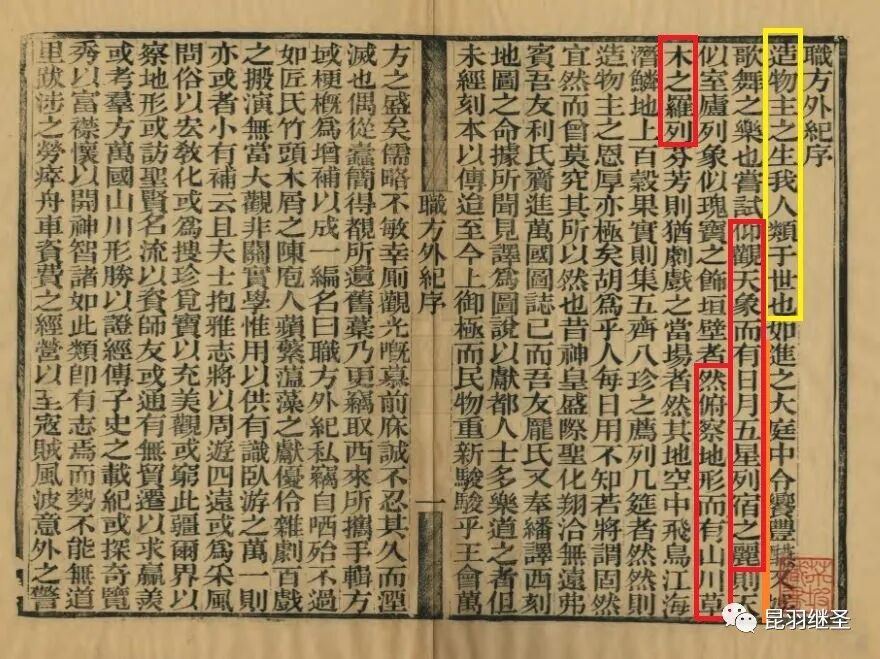 職方外紀序
造物主之生我人類于世也如進之大庭中令饗豐
歌舞之樂也嘗試仰觀天象而有日月五星列宿之麗則天
似室廬列象似瑰寶之飾垣壁者然俯察地形而有山川草
木之羅列芬芳則猶劇戲之當場者然其地空中飛鳥江海
潛鱗地上百穀果實則集五齊八珍之薦列几筵者然然則
造物主之恩厚亦極矣胡為乎人每日用不知若將謂固然
宜然而曾莫究其所以然也昔神皇盛際聖化翔洽無遠弗
賓吾友利氏齎進萬國圖誌已而吾友龐氏又奉繙譯西刻
地圖之命據所聞見譯爲圖說以獻都人士多樂道之者但
未經刻本以傳迨至今上御極而民物重新駸駸乎王會萬
職方外紀序
一
方之盛矣儒略不敏幸厠觀光慨慕前庥誠不忍其久而湮
滅也偶從蠹簡得覩所遺舊藁乃更竊取西來所攜手輯方
域梗槩爲增補以成一編名曰職方外紀私竊自哂殆不過
如匠氏竹頭木屑之陳庖人蘋蘩薀藻之獻優伶雜劇百戲
之搬演無當大觀非關實學惟用以供有識臥游之萬一則
亦或者小有補云且夫士抱雅志將以周遊四遠或爲采風
問俗以宏敎化或爲搜珍覓寶以充美觀或窮此疆爾界以
察地形或訪聖賢名流以資師友或通有無貿遷以求贏羨
或考羣方萬國山川形勝以證經傳子史之載紀或探奇覽
秀以富襟懷以開神智諸如此類卽有志焉而勢不能無道
里跋涉之勞瘁舟車資費之經營以至寇賊風波意外之警
昆羽继圣